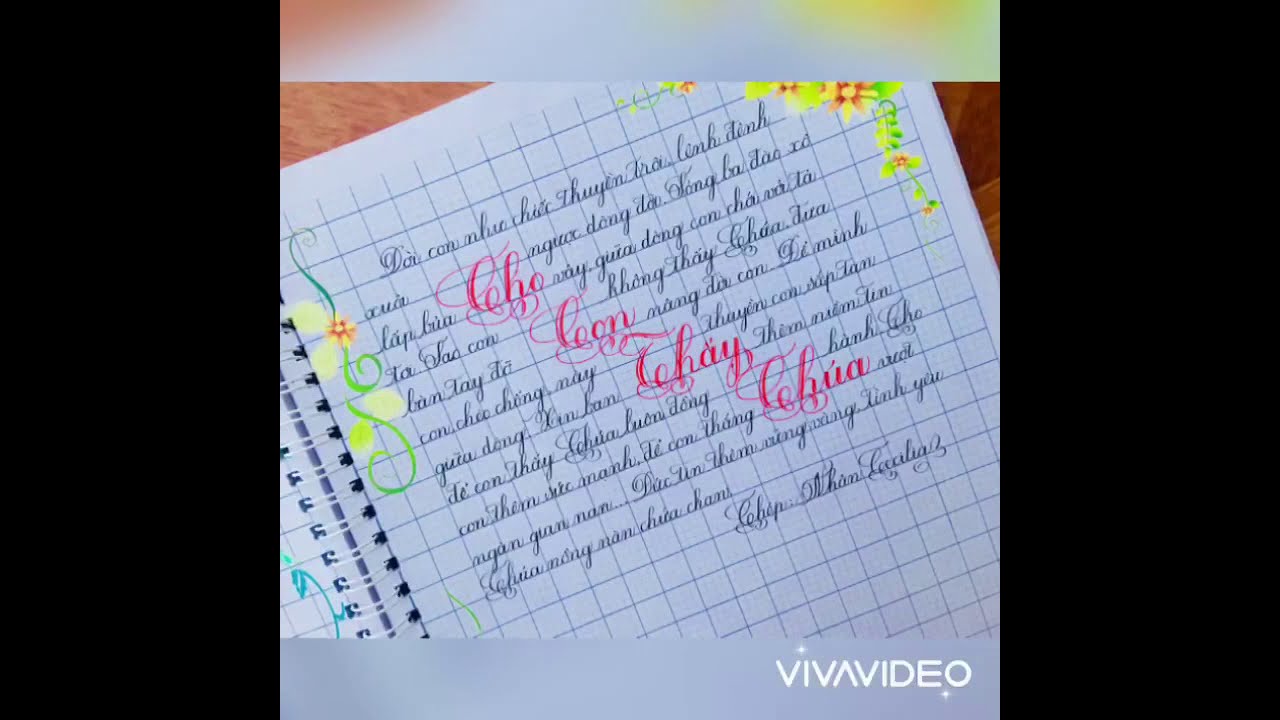 Đời con như chiếc thuyền trôi, lênh đênh
xuôi ngược dòng đời. Sóng ba đào xô
lấp bủa Cho vây, giữa dòng con chới với tả
tơi. Sao con không thấy Chúa, đưa
bàn tay đỡ Con nâng đời con. Để mình
con, chèo chống này thuyền con sắp tàn
giữa dòng. Xin ban Thấy thêm niềm tin
để con thấy Chúa luôn đồng Chúa hành. Cho
con thêm sức mạnh, để con thắng vượt
ngàn gian nan... Đức tin thêm vững vàng, tình yêu
Chúa nồng nàn chứa chan.
Chép: Nhàn Cecilia
VIVAVIDEO